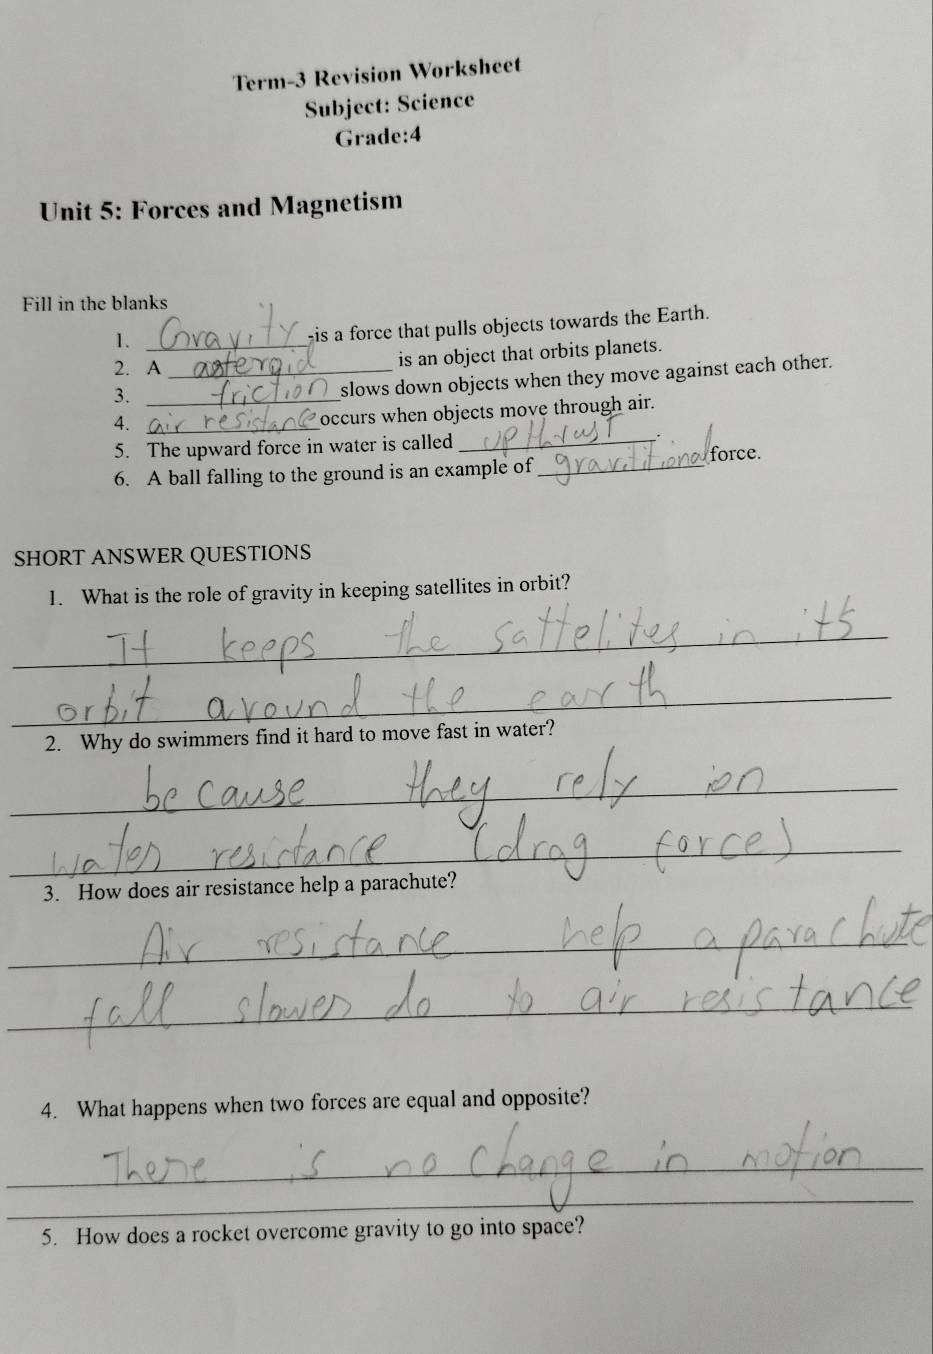 Term-3 Revision Worksheet
Subject: Science
Grade:4
Unit 5: Forces and Magnetism
Fill in the blanks
1. Gravity -is a force that pulls objects towards the Earth.
2. A asteroid is an object that orbits planets.
3. friction slows down objects when they move against each other.
4. air resistance occurs when objects move through air.
5. The upward force in water is called upthrust.
6. A ball falling to the ground is an example of gravititional force.
SHORT ANSWER QUESTIONS
1. What is the role of gravity in keeping satellites in orbit?
It keeps the sattelites in its
orbit around the earth
2. Why do swimmers find it hard to move fast in water?
because they rely on
water resistance (drag force)
3. How does air resistance help a parachute?
Air resistance help a parachute
fall slower do to air resistance
4. What happens when two forces are equal and opposite?
There is no change in motion
5. How does a rocket overcome gravity to go into space?